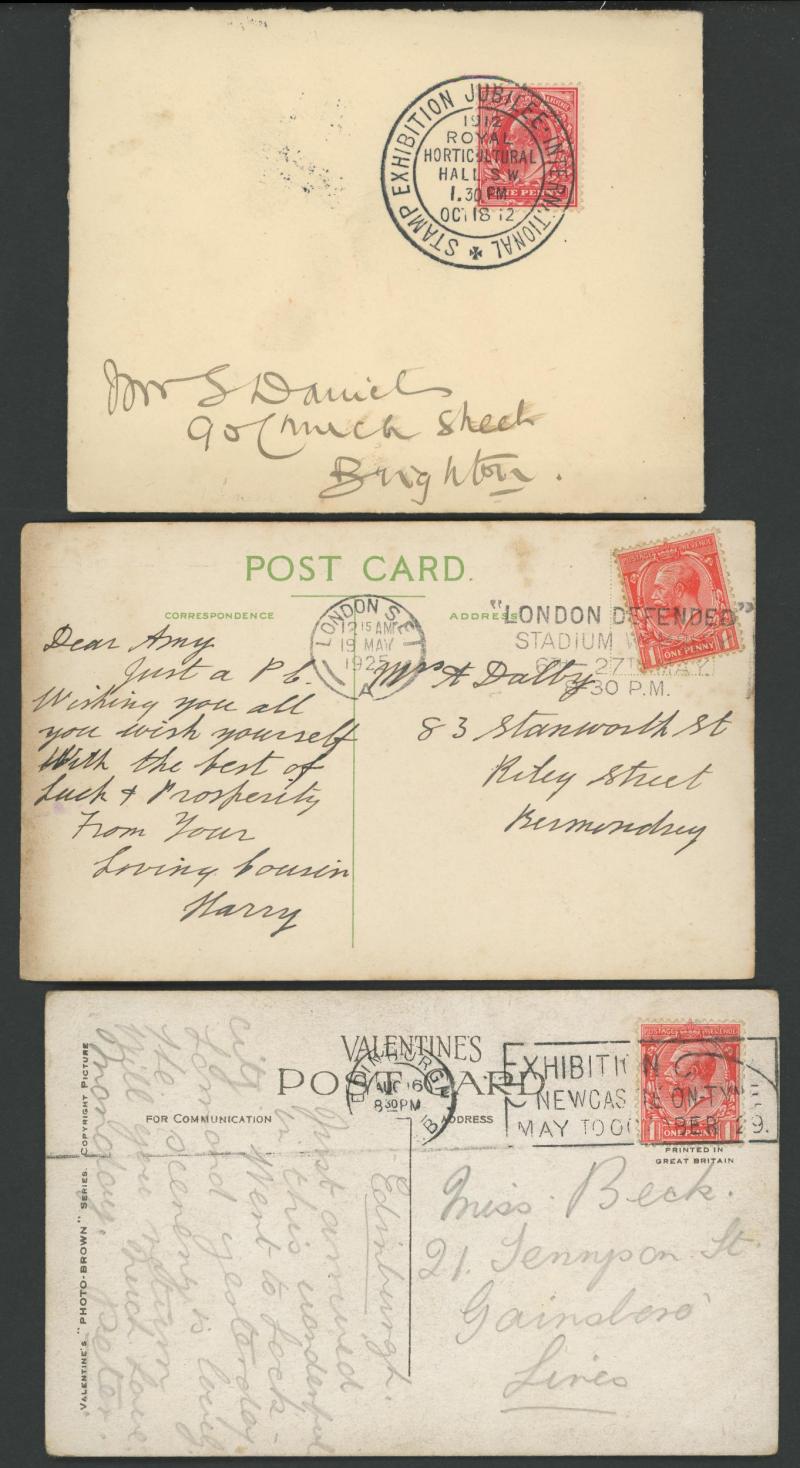 STAMP EXHIBITION JUBILEE INTERNATIONAL
1912
ROYAL
HORTICULTURAL
HALL S.W.
1.30 PM
OCT 18 12
ONE PENNY
Mr S Daniels
90 Church Street
Brighton.
POST CARD.
CORRESPONDENCE
ADDRESS
LONDON S.E.1
12 15 AM
19 MAY
1925
A
"LONDON DEFENDED"
STADIUM
27TH MAY
8.30 P.M.
POSTAGE REVENUE
1 ONE PENNY 1
Dear Amy
Just a P.C.
Wishing you all
you wish yourself
With the best of
Luck & Prosperity
From Your
Loving Cousin
Harry
Mrs A Dalby
83 Stanworth St
Riley Street
Bermondsey
VALENTINE'S
POST CARD
FOR COMMUNICATION
ADDRESS
EDINBURGH
AUG 16
8 30 PM
B
EXHIBITION
NEWCASTLE-ON-TYNE
MAY TO OCTOBER '29.
POSTAGE REVENUE
1 ONE PENNY 1
PRINTED IN
GREAT BRITAIN
VALENTINE'S "PHOTO-BROWN" SERIES. COPYRIGHT PICTURE
Edinburgh.
Just arrived
in this wonderful
city. Went to Loch-
Lomond yesterday
the scenery is lovely
Will you return
Monday. Much Love
Peter.
Miss. Beck.
21. Tennyson St.
Gainsboro'
Lincs